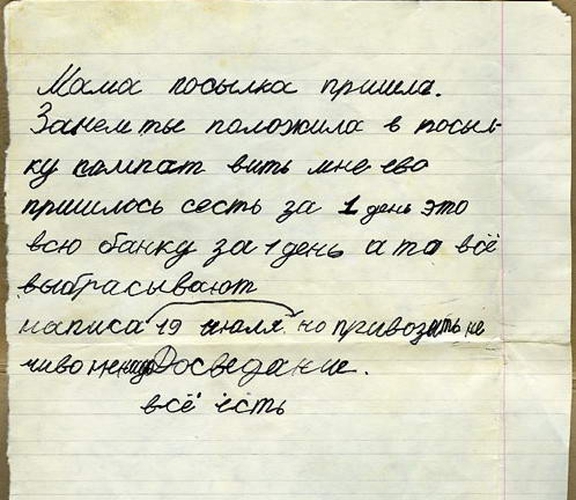 Мама посылка пришла.
Зачем ты положила в посыл-
ку кампат вить мне ево
пришлось сесть за 1 день это
всю банку за 1 день а то всё
выбрасывают
написа 19 июля. но привозить не
чиво Досведание.
всё есть